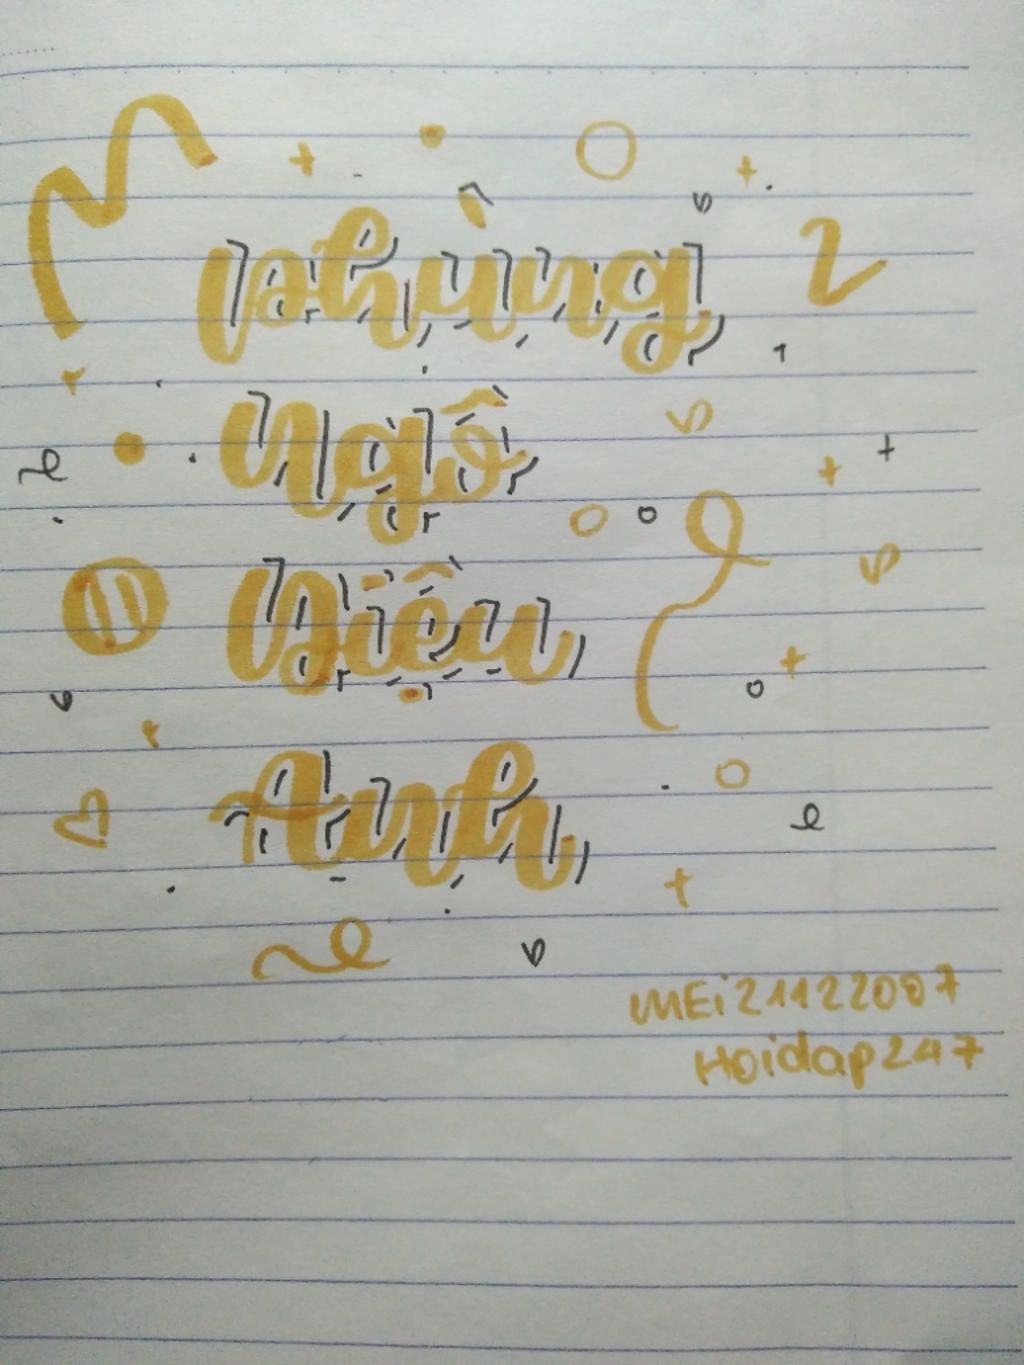 Phùng
Ngô
Diệu
Anh
MEi21122007
Hoidap247